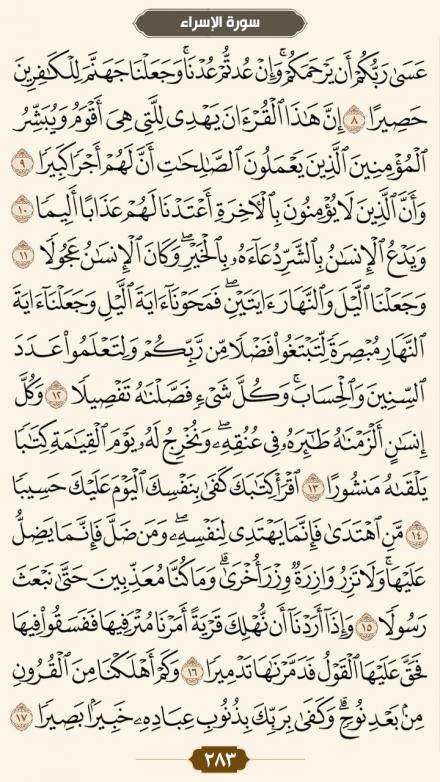 سورة الإسراء
عَسَىٰ رَبُّكُمْ أَن يَرْحَمَكُمْ ۚ وَإِنْ عُدتُّمْ عُدْنَا ۘ وَجَعَلْنَا جَهَنَّمَ لِلْكَافِرِينَ
حَصِيرًا ٨ إِنَّ هَٰذَا الْقُرْءَانَ يَهْدِي لِلَّتِي هِيَ أَقْوَمُ وَيُبَشِّرُ
الْمُؤْمِنِينَ الَّذِينَ يَعْمَلُونَ الصَّالِحَاتِ أَنَّ لَهُمْ أَجْرًا كَبِيرًا ٩
وَأَنَّ الَّذِينَ لَا يُؤْمِنُونَ بِالْآخِرَةِ أَعْتَدْنَا لَهُمْ عَذَابًا أَلِيمًا ١٠
وَيَدْعُ الْإِنسَانُ بِالشَّرِّ دُعَاءَهُ بِالْخَيْرِ ۖ وَكَانَ الْإِنسَانُ عَجُولًا ١١
وَجَعَلْنَا اللَّيْلَ وَالنَّهَارَ ءَايَتَيْنِ ۖ فَمَحَوْنَا ءَايَةَ اللَّيْلِ وَجَعَلْنَا ءَايَةَ
النَّهَارِ مُبْصِرَةً لِّتَبْتَغُوا فَضْلًا مِّن رَّبِّكُمْ وَلِتَعْلَمُوا عَدَدَ
السِّنِينَ وَالْحِسَابَ ۚ وَكُلَّ شَيْءٍ فَصَّلْنَاهُ تَفْصِيلًا ١٢ وَكُلَّ
إِنسَانٍ أَلْزَمْنَاهُ طَائِرَهُ فِي عُنُقِهِ ۖ وَنُخْرِجُ لَهُ يَوْمَ الْقِيَامَةِ كِتَابًا
يَلْقَاهُ مَنشُورًا ١٣ اقْرَأْ كِتَابَكَ كَفَىٰ بِنَفْسِكَ الْيَوْمَ عَلَيْكَ حَسِيبًا
١٤ مَّنِ اهْتَدَىٰ فَإِنَّمَا يَهْتَدِي لِنَفْسِهِ ۖ وَمَن ضَلَّ فَإِنَّمَا يَضِلُّ
عَلَيْهَا ۚ وَلَا تَزِرُ وَازِرَةٌ وِزْرَ أُخْرَىٰ ۗ وَمَا كُنَّا مُعَذِّبِينَ حَتَّىٰ نَبْعَثَ
رَسُولًا ١٥ وَإِذَا أَرَدْنَا أَن نُّهْلِكَ قَرْيَةً أَمَرْنَا مُتْرَفِيهَا فَفَسَقُوا فِيهَا
فَحَقَّ عَلَيْهَا الْقَوْلُ فَدَمَّرْنَاهَا تَدْمِيرًا ١٦ وَكَمْ أَهْلَكْنَا مِنَ الْقُرُونِ
مِن بَعْدِ نُوحٍ ۗ وَكَفَىٰ بِرَبِّكَ بِذُنُوبِ عِبَادِهِ خَبِيرًا بَصِيرًا ١٧
٢٨٣